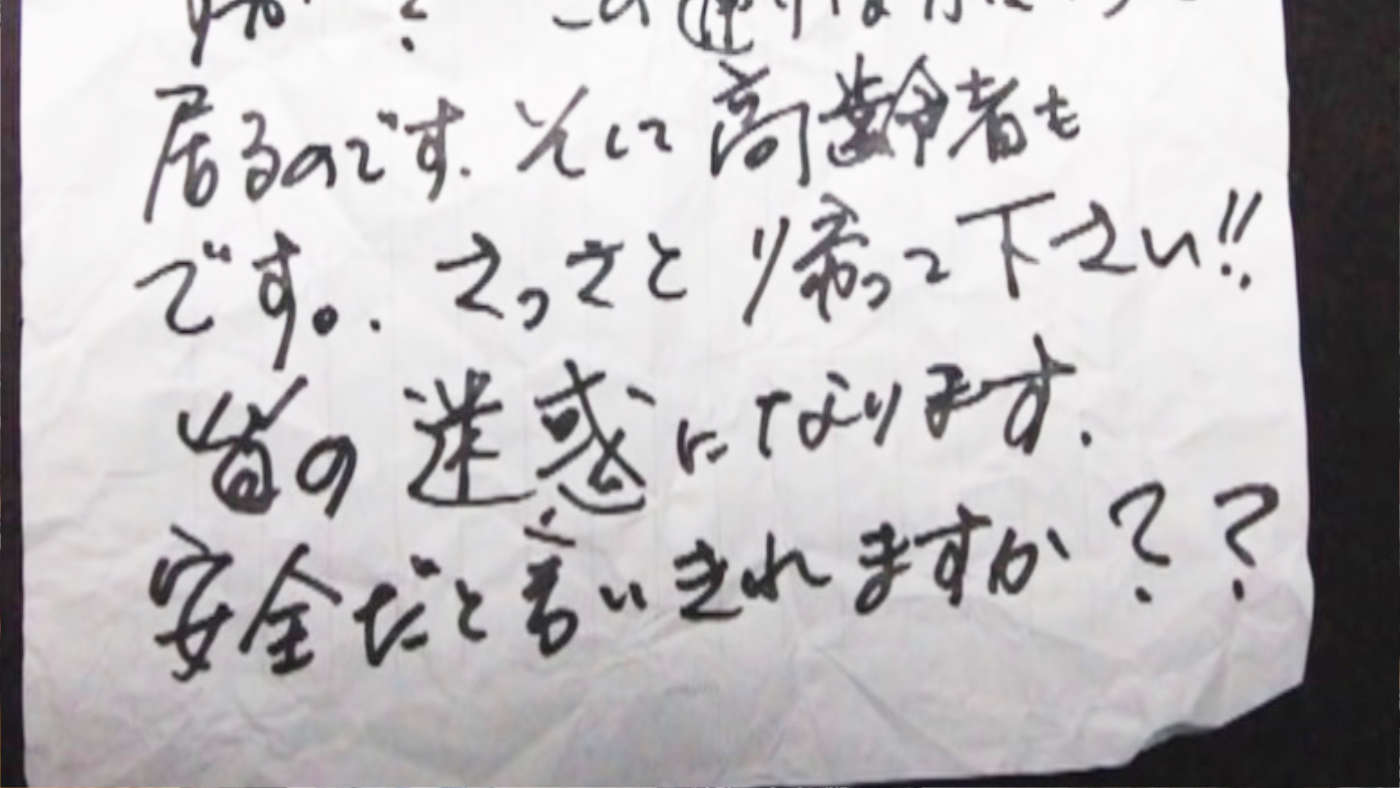 居るのです.そして高齢者も
です。.さっさと帰って下さい!!
皆の迷惑になります.
安全だと言いきれますか??